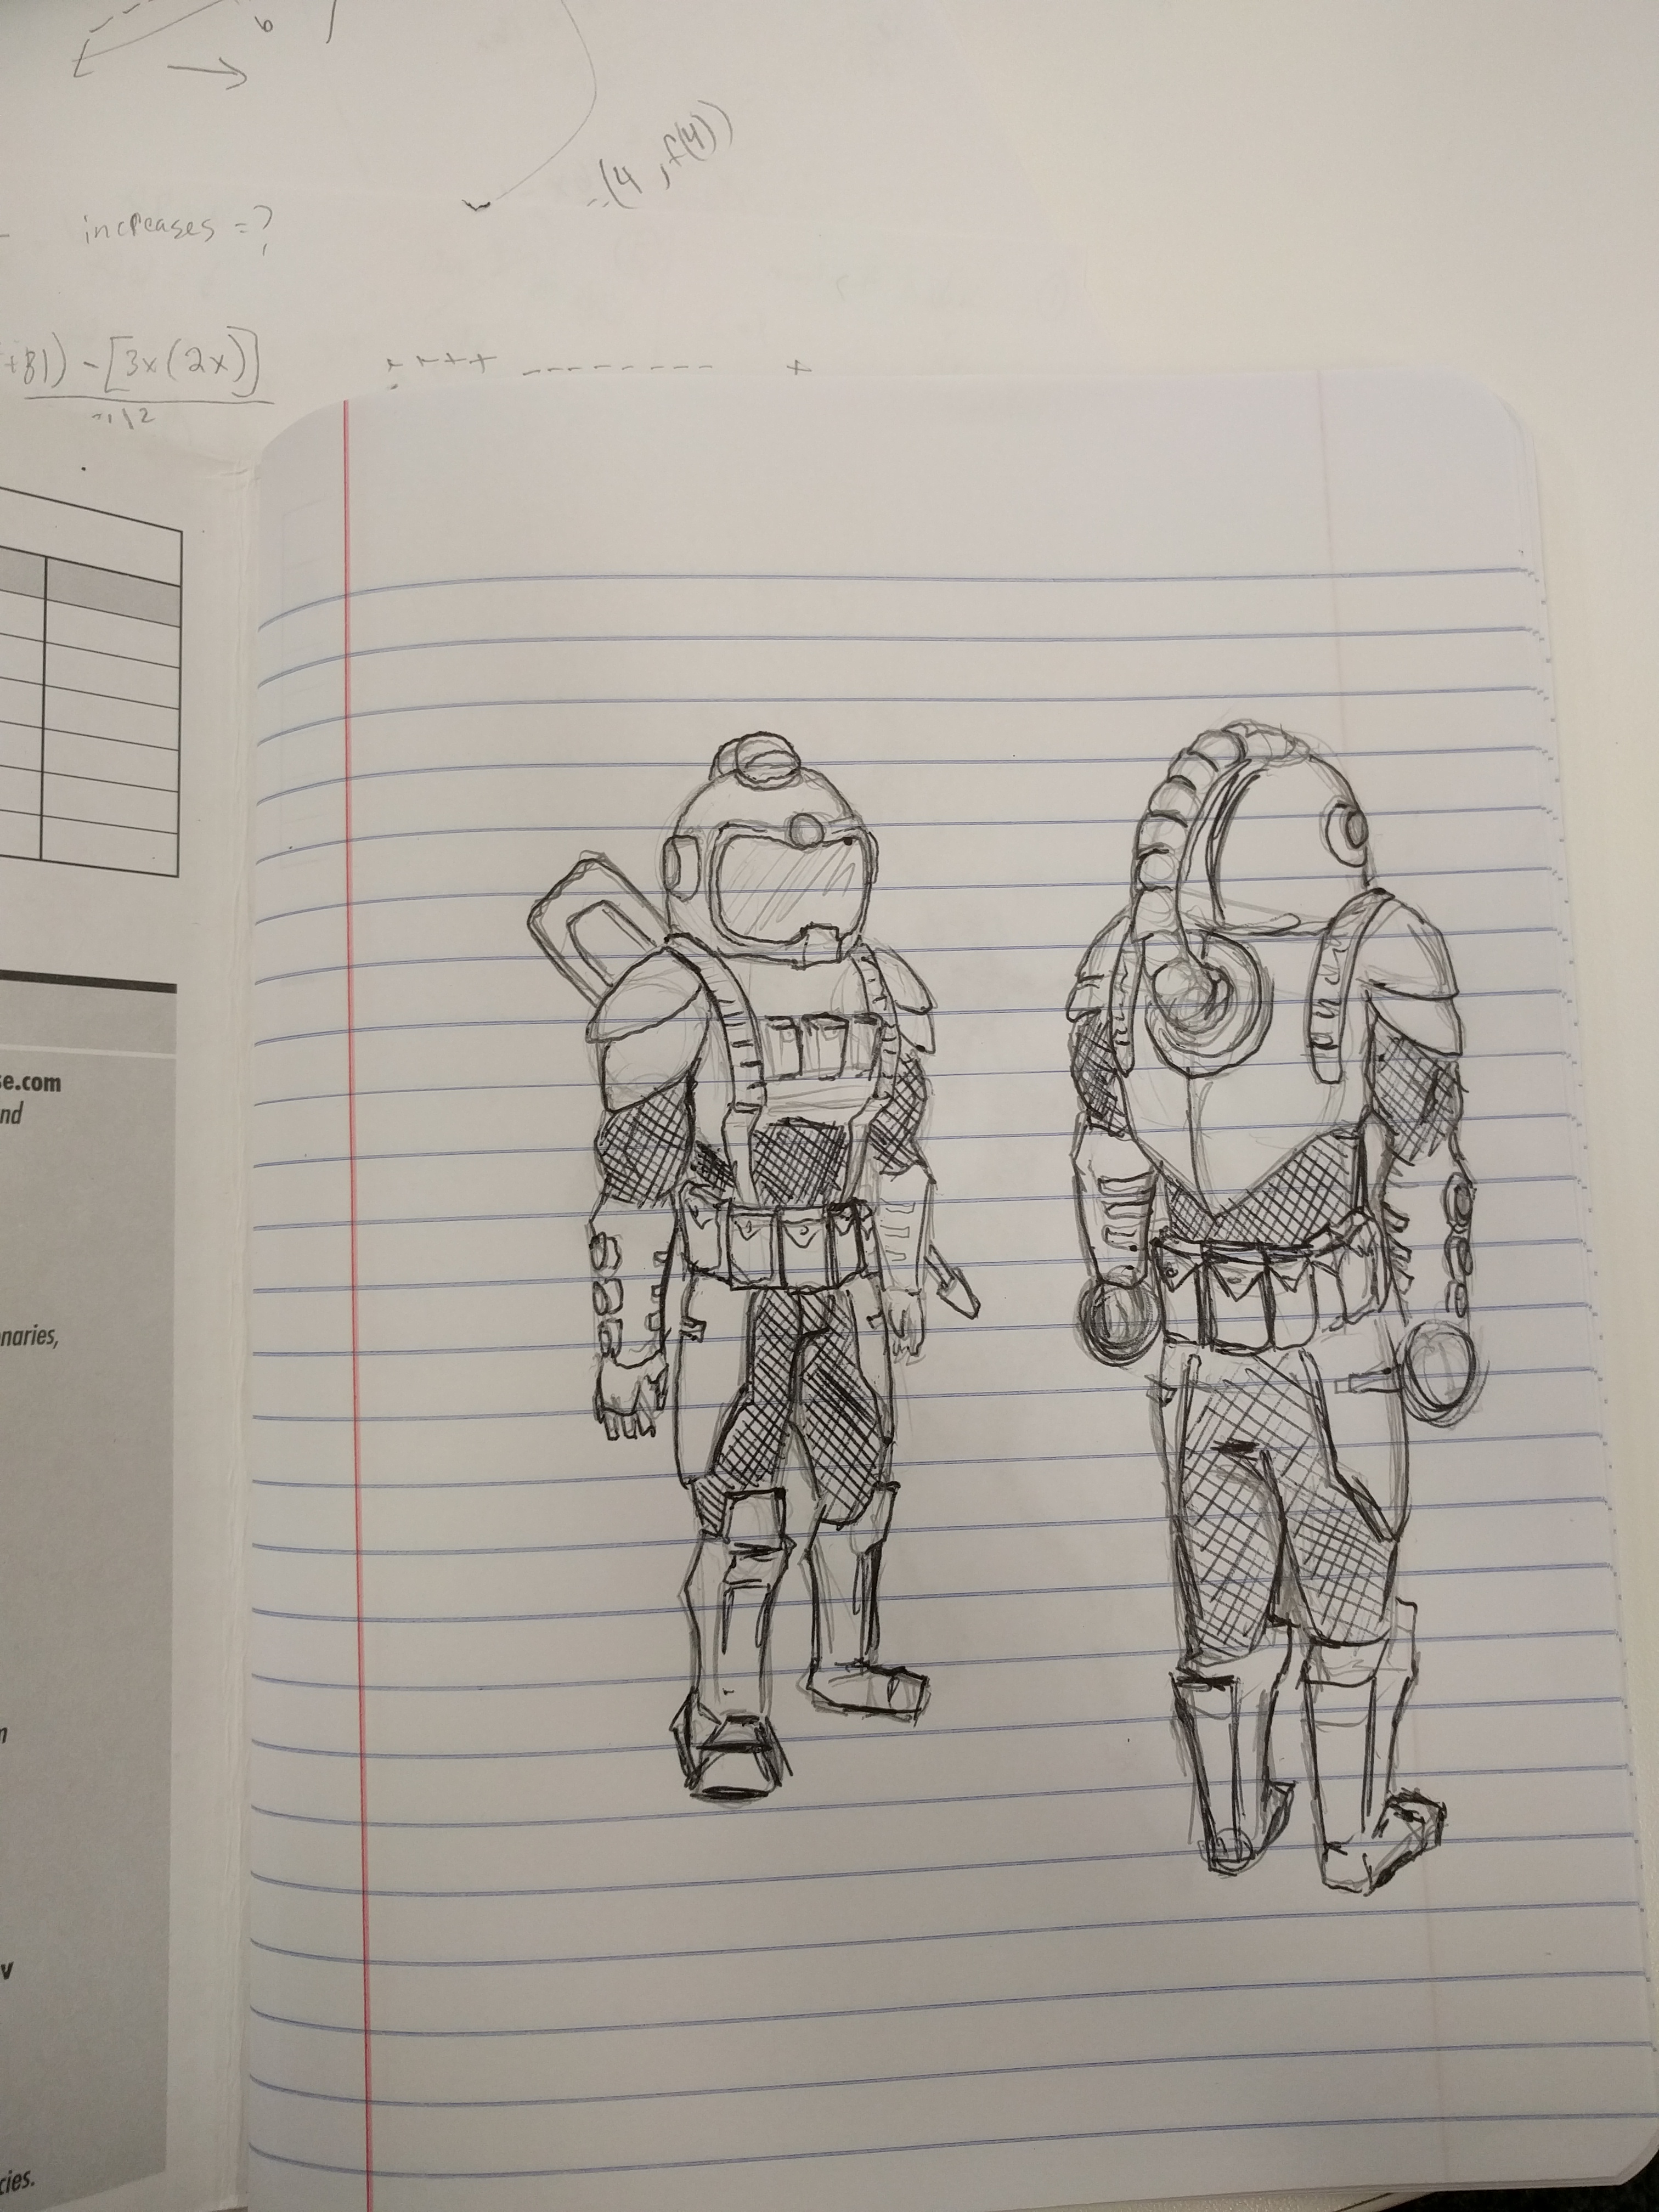 b
(4, f(4))
increases = ?
+81) - [3x(2x)]
++++ -------- +
se.com
nd
naries,
v
cies.